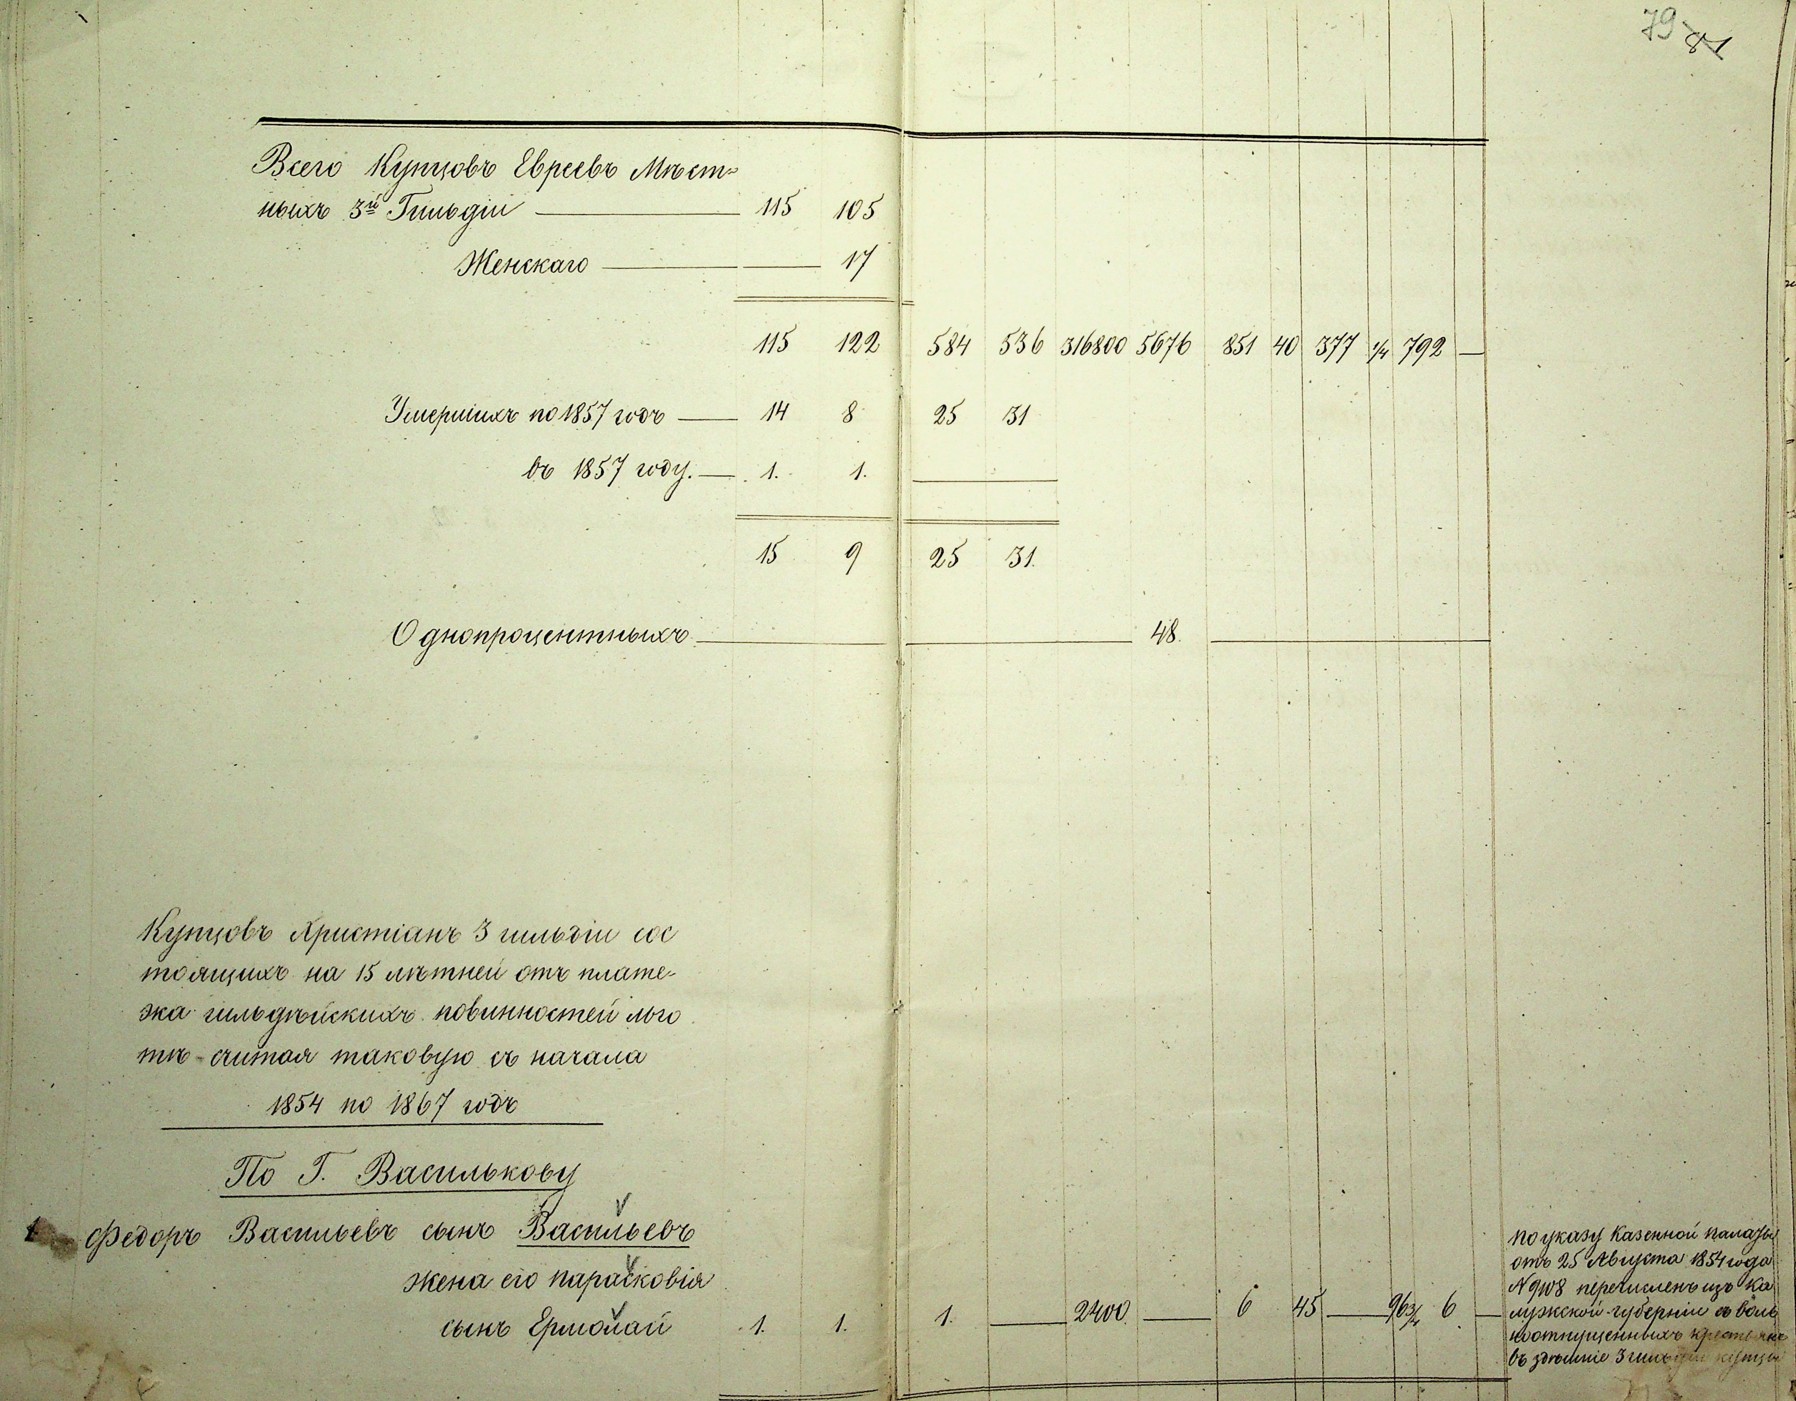 79 81
Всего Купцовъ Евреевъ Мѣст-
ныхъ 3й Гильдіи — 115 105
Женскаго — — 17
115 122 584 536 316800 5676 851 40 377 1/4 792 —
Умершихъ по 1857 годъ — 14 8 25 31
въ 1857 году. — 1. 1. —
15 9 25 31.
Однопроцентныхъ — 48. —
Купцовъ Христіанъ 3 гильдіи сос
тоящихъ на 15 лѣтней отъ плате-
жа гильдѣйскихъ повинностей льго
тѣ считая таковую съ начала
1854 по 1867 годъ
По Г. Василькову
1 Федоръ Васильевъ сынъ Васильевъ
жена его Парасковія
сынъ Ермолай 1. 1. 1. — 2400 — 6 45 — 96 3/4 6 —
по указу Казенной палаты
отъ 25 Августа 1854 года
N 9108 перечисленъ изъ Ка
лужской губерніи съ воль
ноотпущенныхъ крестьянъ
въ здѣшніе 3 гильдіи купцы